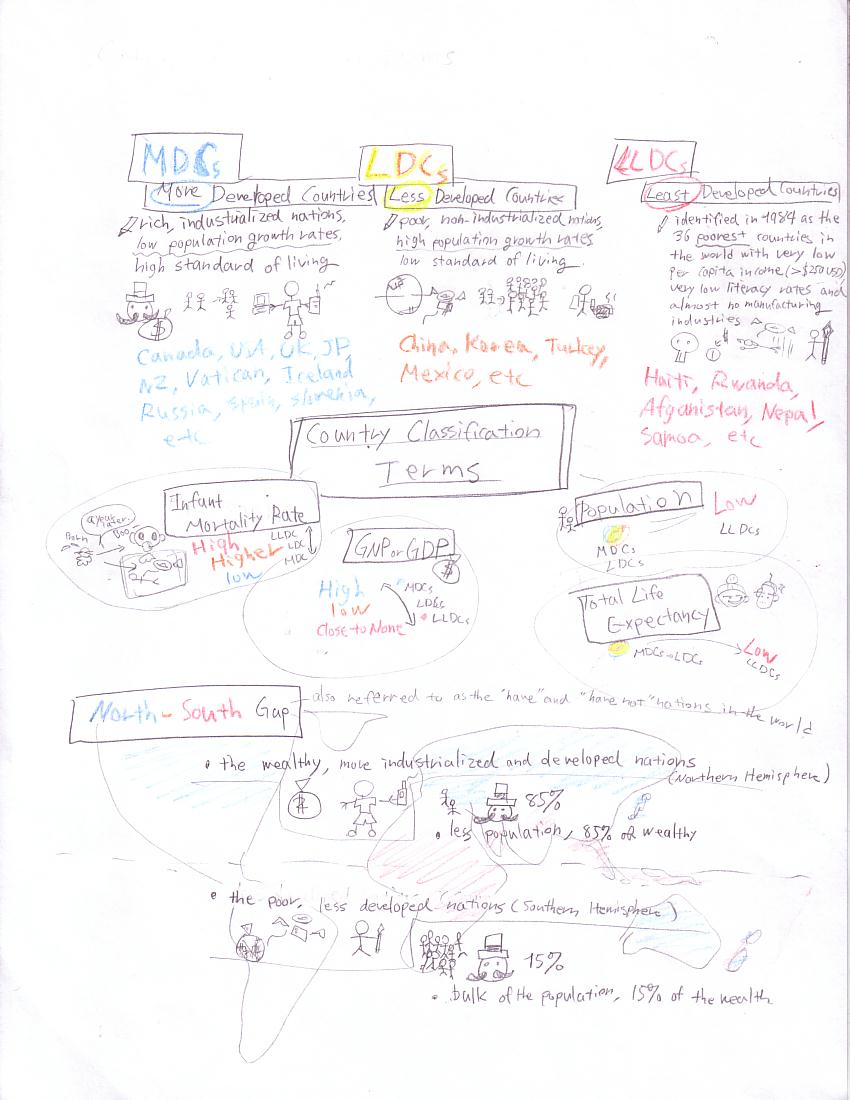 MDCs
More Developed Countries
rich, industrialized nations,
low population growth rates,
high standard of living
$
Canada, USA, UK, JP,
NZ, Vatican, Iceland
Russia, Spain, Slovenia,
etc
LDCs
Less Developed Countries
poor, non-industrialized nations,
high population growth rates
low standard of living
China, Korea, Turkey,
Mexico, etc
LLDCs
Least Developed Countries
identified in 1984 as the
36 poorest countries in
the world with very low
per capita income (>$250 USD)
very low literacy rates and
almost no manufacturing
industries
Haiti, Rwanda,
Afganistan, Nepal,
Samoa, etc
Country Classification
Terms
Infant
Mortality Rate
a year later
Born
Boo
High LLDC
Higher LDC
low MDC
GNP or GDP
$
High MDCs
low LDCs
Close to None LLDCs
Population
Low
LLDCs
MDCs
LDCs
Total Life
Expectancy
MDCs LDCs
Low
LLDCs
North-South Gap
also referred to as the "have" and "have not" nations in the world
the wealthy, more industrialized and developed nations
(Northern Hemisphere)
85%
less population, 85% of wealthy
the poor, less developed nations (Southern Hemisphere)
15%
bulk of the population, 15% of the wealth